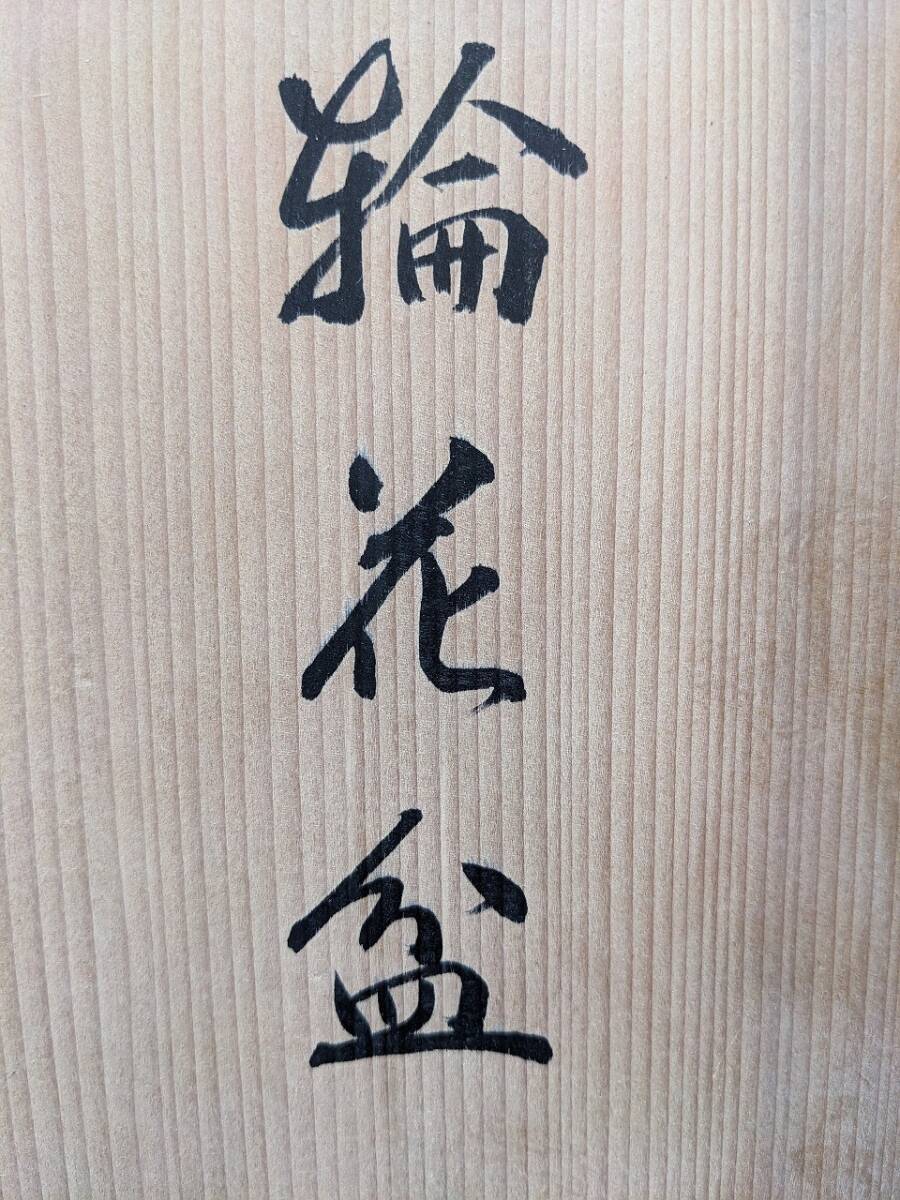 輪花盆